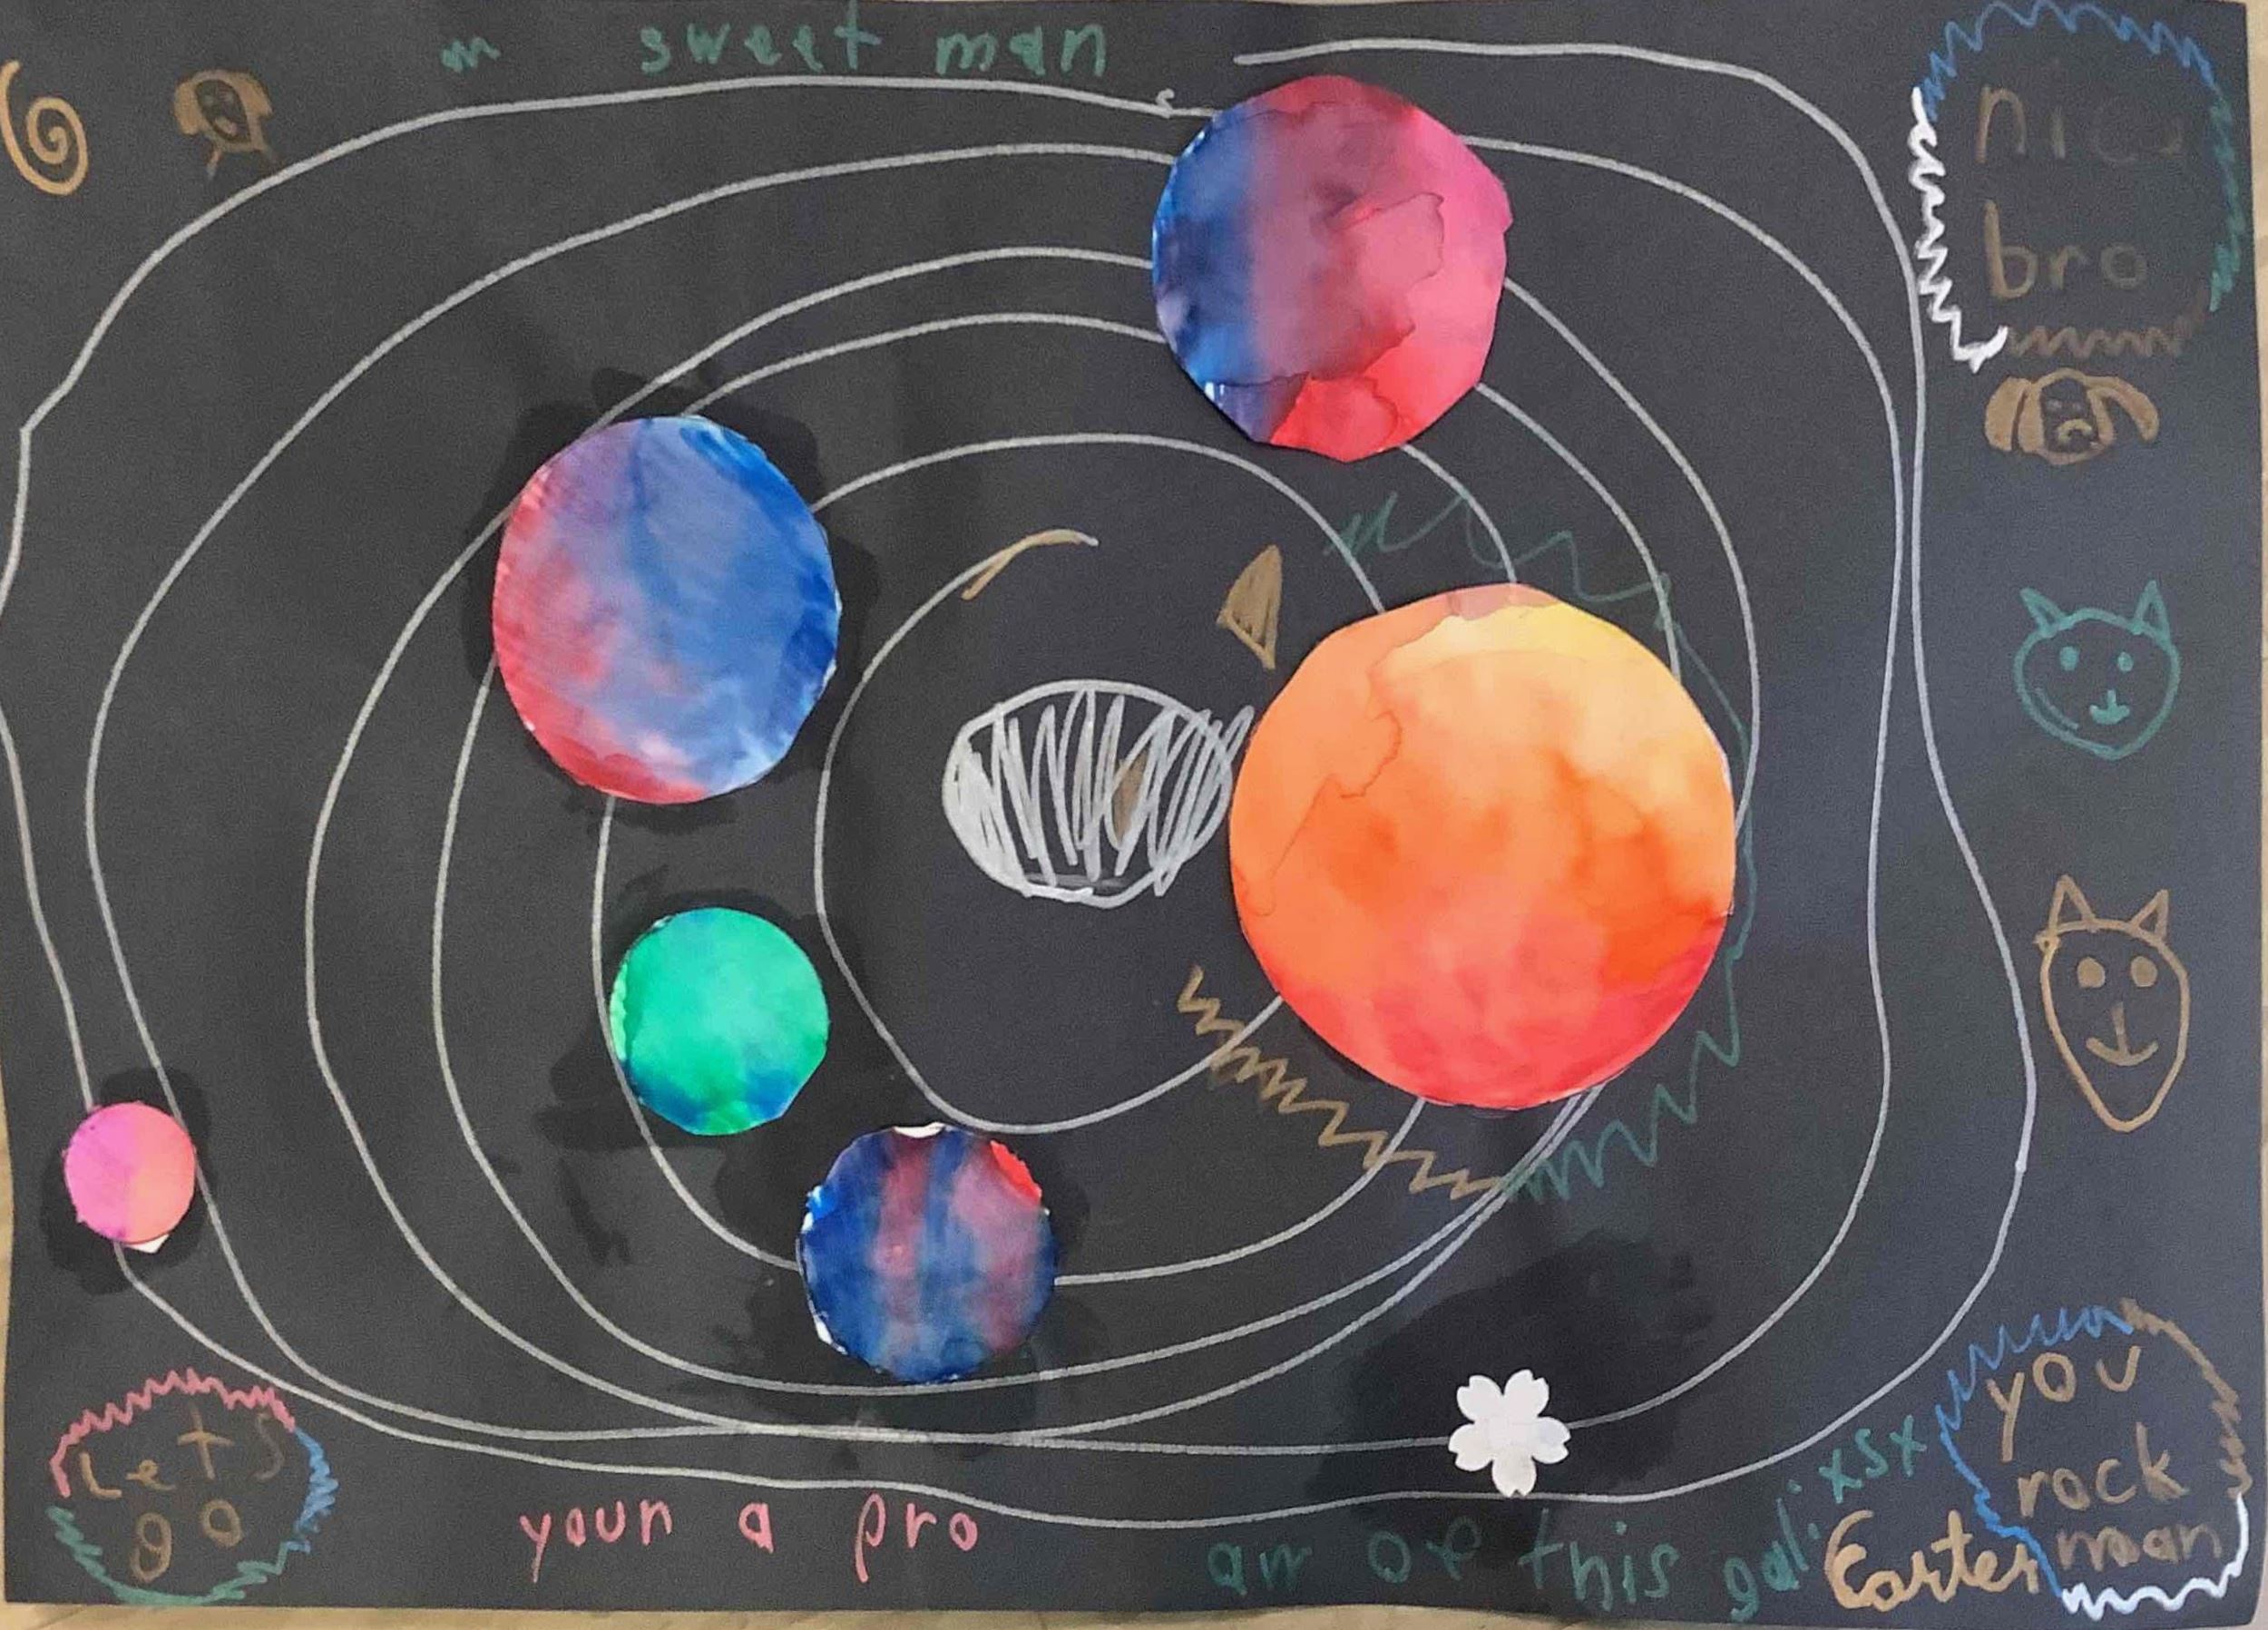 sweet man
nice
bro
Lets
go
youn a pro
this
you
rock
man
Carter